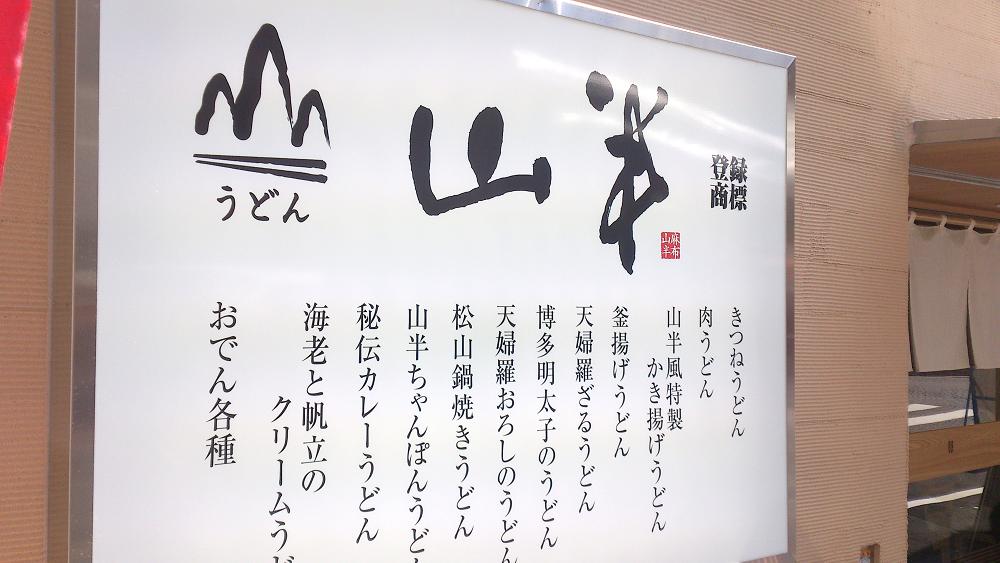 うどん
山半
登録
商標
麻布
山半
きつねうどん
肉うどん
山半風特製
かき揚げうどん
釜揚げうどん
天婦羅ざるうどん
博多明太子のうどん
天婦羅おろしのうどん
松山鍋焼きうどん
山半ちゃんぽんうどん
秘伝カレーうどん
海老と帆立の
クリームうど
おでん各種